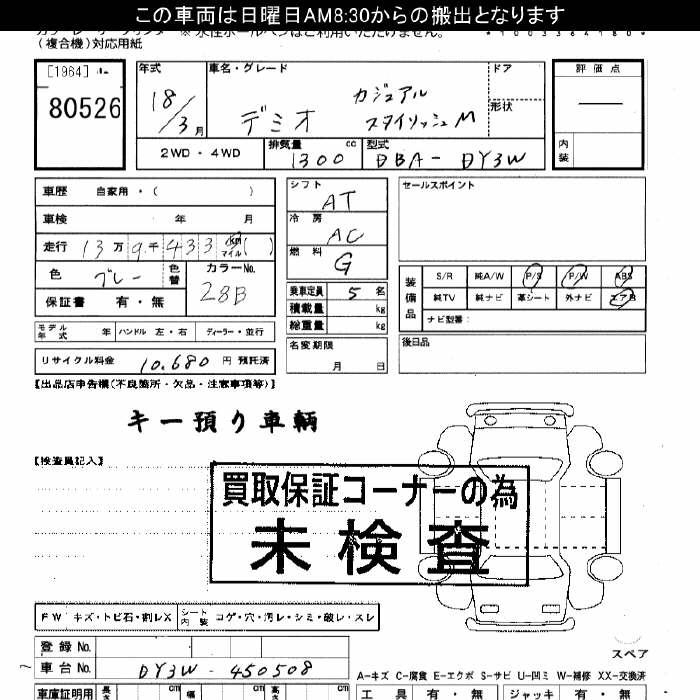 この車両は日曜日AM8:30からの搬出となります
(複合機)対応用紙
[1964]
80526
年式
18/3月
車名・グレード
デミオ
カジュアル
スタイリッシュM
ドア
形状
評価点
内装
2WD・4WD
排気量
1300 cc
型式
DBA-DY3W
車歴 自家用・( )
車検 年 月
走行 13万9千433 km マイル ( )
色 グレー
色替
カラーNo.
28B
保証書 有・無
シフト
AT
冷房
AC
燃料
G
乗車定員 5 名
積載量 kg
総重量 kg
名変期限
月 日
セールスポイント
装備品
S/R 純A/W P/S P/W ABS
純TV 純ナビ 革シート 外ナビ エアB
ナビ型番:
後日品
モデル年式 年 ハンドル 左・右 ディーラー・並行
リサイクル料金 10,680 円 預託済
【出品店申告欄(不良箇所・欠品・注意事項等)】
キー預り車輌
【検査員記入】
買取保証コーナーの為
未検査
FW キズ・トビ石・割レX
シート内装 コゲ・穴・汚レ・シミ・破レ・スレ
登録No.
車台No. DY3W-450508
スペア
A-キズ C-腐食 E-エクボ S-サビ U-凹ミ W-補修 XX-交換済
車庫証明用 長さ cm 幅 cm 高さ cm
工具 有・無 ジャッキ 有・無